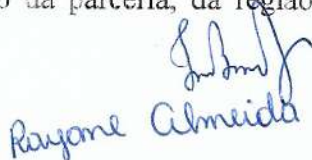 da parceria, da região
Rayane Almeida